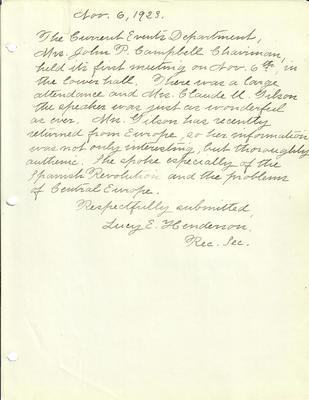 Nov. 6, 1923.
The Current Events Department,
Mrs. John P. Campbell Chairman,
held its first meeting on Nov. 6th, in
the lower hall. There was a large
attendance and Mrs. Claude U. Gilson
the speaker was just as wonderful
as ever. Mrs. Gilson has recently
returned from Europe, so her information
was not only interesting, but thoroughly
authenic. She spoke especially of the
Spanish Revolution and the problems
of Central Europe.
Respectfully submitted,
Lucy E. Henderson,
Rec. Sec.